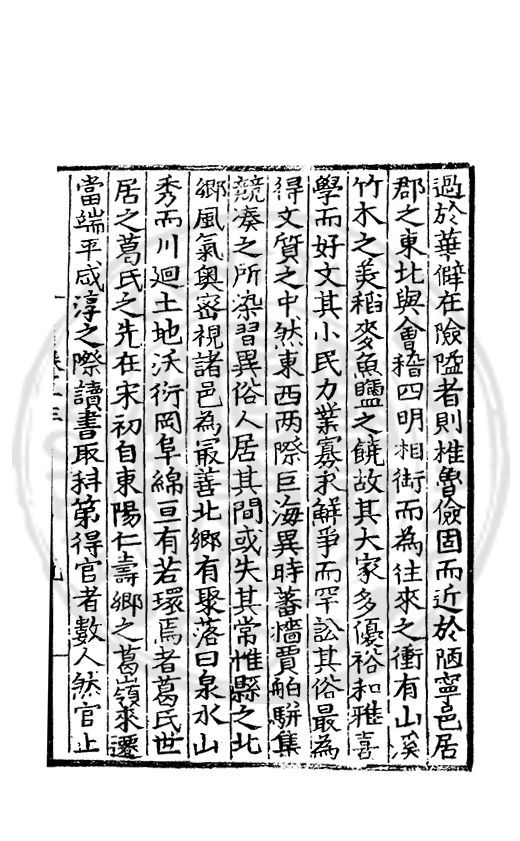 過於華僻在險隘者則椎魯儉固而近於陋寧邑居
郡之東北與會稽四明相銜而為往來之衝有山溪
竹木之美稻麥魚鹽之饒故其大家多優裕和雅喜
學而好文其小民力業寡求鮮爭而罕訟其俗最為
得文質之中然東西两際巨海異時蕃檣賈舶駢集
競湊之所染習異俗人居其間或失其常惟縣之北
鄉風氣奥宻視諸邑為㝡善北鄉有聚落曰泉水山
秀而川迴土地沃衍岡阜綿亘有若環焉者葛氏世
居之葛氏之先在宋初自東陽仁壽鄉之葛嶺來遷
當端平咸淳之際讀書取科第得官者數人然官止